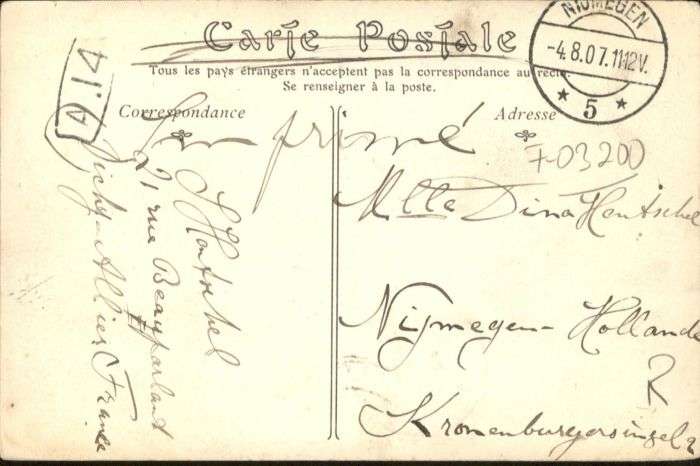 Carte Postale
Tous les pays étrangers n'acceptent pas la correspondance au recto.
Se renseigner à la poste.
NIJMEGEN
-4.8.07.11-12V.
* 5 *
Correspondance
Adresse
Imprimé
7-03200
S Hentschel
21 rue Beauparlant
Vichy-Allier (France
Mlle Dina Hentschel
Nijmegen-Hollande
Kronenburgersingel 2